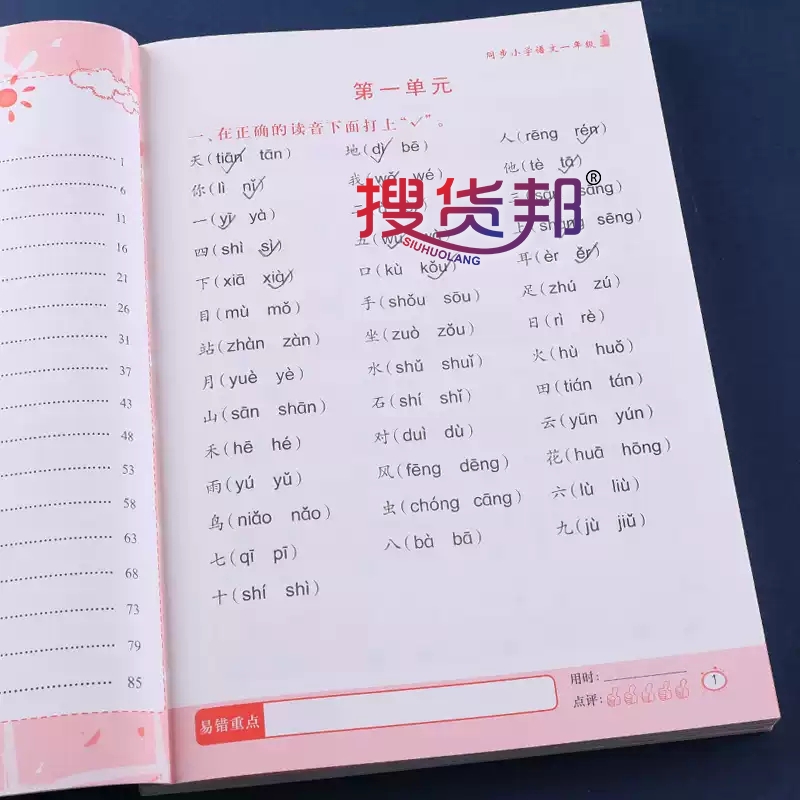 1
6
11
16
21
26
31
37
43
48
53
58
63
68
73
79
85
同步小学语文一年级
第一单元
一、在正确的读音下面打上“✓”。
天(tiān tān) 地(dì bē) 人(rēng rén)
你(lì nǐ) 我(wǒ wé) 他(tè tā)
一(yī yà) 三(sān sāng)
四(shì sì) 五(wǔ 上(shàng sēng)
下(xiā xià) 口(kù kǒu) 耳(èr ěr)
目(mù mǒ) 手(shǒu sōu) 足(zhú zú)
站(zhàn zàn) 坐(zuò zǒu) 日(rì rè)
月(yuè yè) 水(shǔ shuǐ) 火(hù huǒ)
山(sān shān) 石(shí shǐ) 田(tián tán)
禾(hē hé) 对(duì dù) 云(yūn yún)
雨(yú yǔ) 风(fēng dēng) 花(huā hōng)
鸟(niǎo nǎo) 虫(chóng cāng) 六(lù liù)
七(qī pī) 八(bà bā) 九(jù jiǔ)
十(shí shì)
搜货邦®
SIUHUOLANG
易错重点
用时:
点评:
1